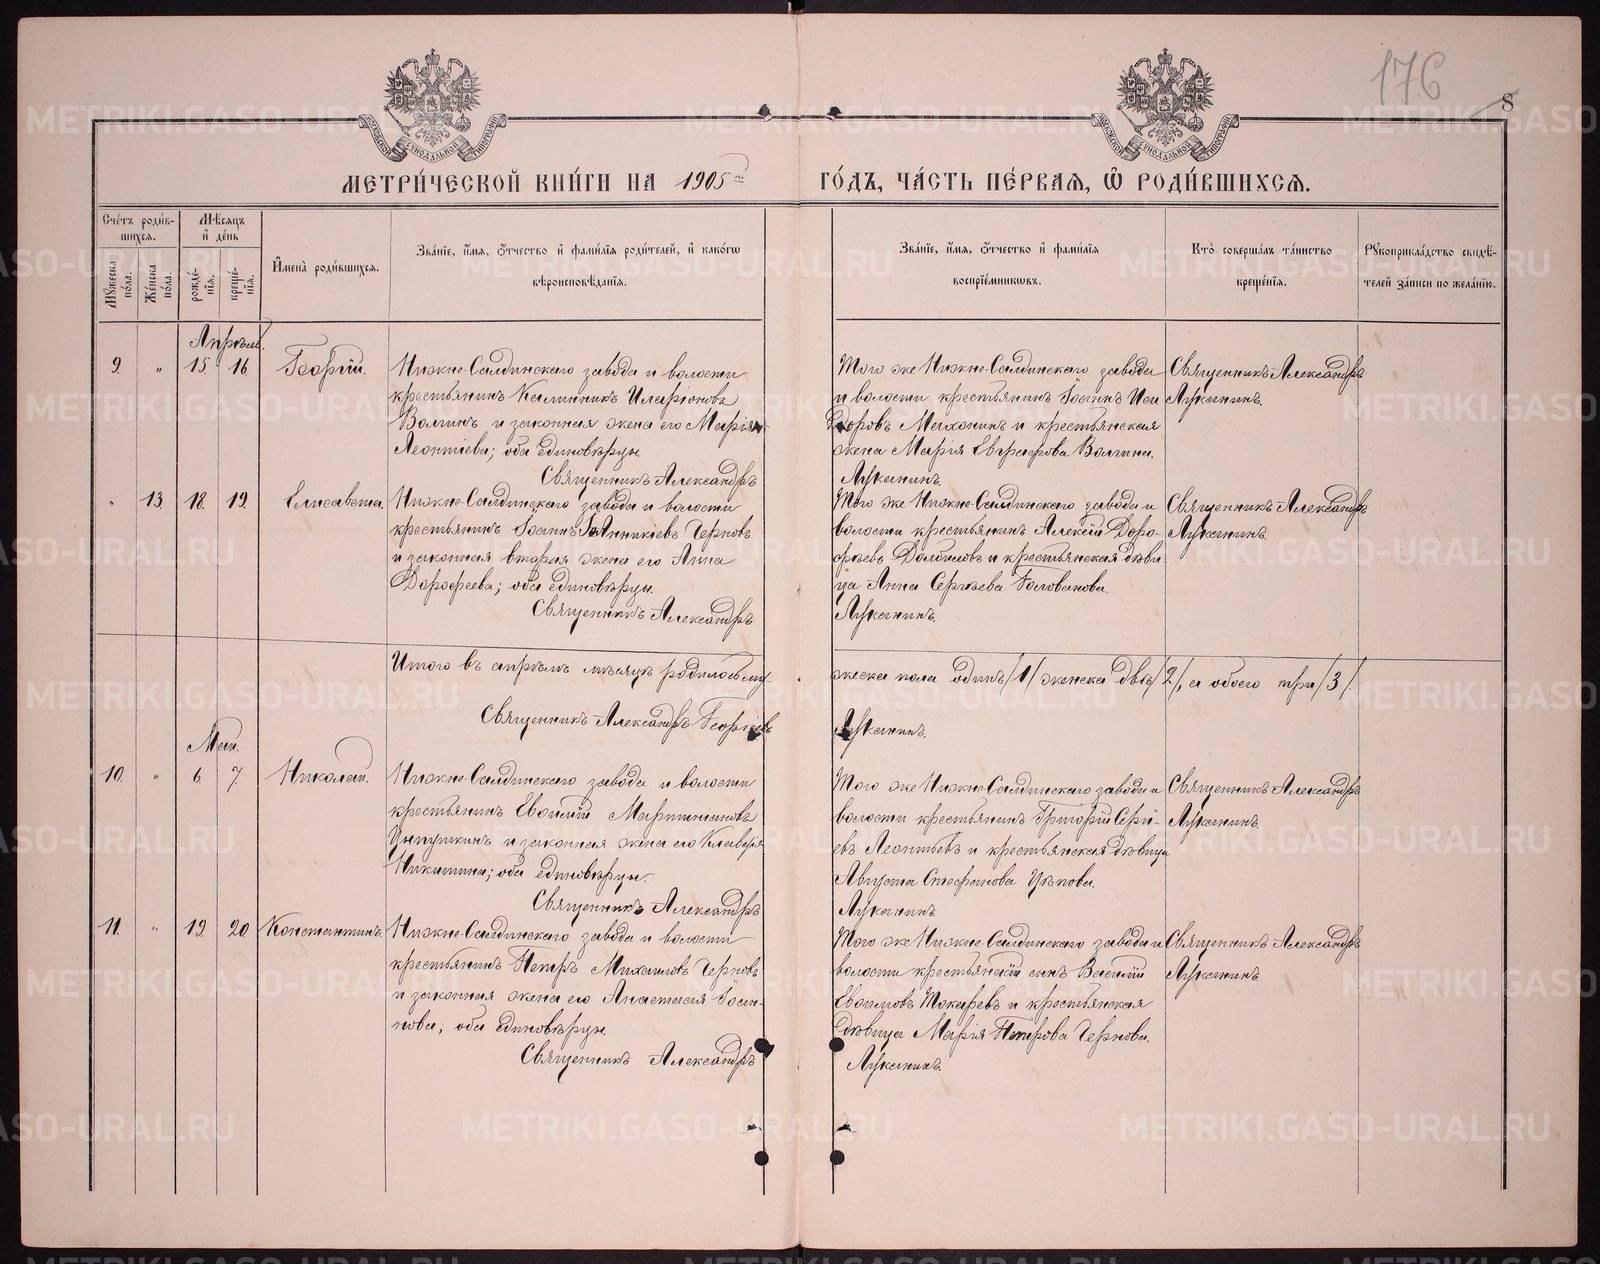 176
8
МОСКОВСКОЙ СУНОДАЛЬНОЙ ТИПОГРАФІИ
МОСКОВСКОЙ СУНОДАЛЬНОЙ ТИПОГРАФІИ
МЕТРИ́ЧЕСКОЙ КНИ́ГИ НА 1905й ГО́ДЪ, ЧА́СТЬ ПЕ́РВАЯ, Ѡ҆ РОДИ́ВШИХСЯ.
Сче́тъ роди́в-
шихся.
Мѣ́сяцъ
и҆ де́нь
Мꙋжеска по́ла.
Же́нска по́ла.
рожде́-
нїя.
креще́-
нїя.
И҆мена̀ роди́вшихся.
Зва́нїе, и҆́мя, ѻ҆́тчество и҆ фами́лїя роди́телей, и҆ како́гѡ
вѣроисповѣ́данїя.
Зва́нїе, и҆́мя, ѻ҆́тчество и҆ фами́лїя
воспрїе́мниковъ.
Кто̀ соверша́лъ та́инство
креще́нїя.
Рꙋкоприкла́дство свидѣ́-
телей за́писи по жела́нїю.
Апрѣль.
9. „ 15. 16. Георгій.
Нижне-Салдинскаго завода и волости
крестьянинъ Каллиникъ Иларіоновъ
Волгинъ и законная жена его Марія
Леонтіева; оба единовѣрцы.
Священникъ Александръ
Того же Нижне-Салдинскаго завода
и волости крестьянинъ Іоаннъ Иси
доровъ Маихонинъ и крестьянская
жена Марія Евграфова Волгина.
Лукинъ.
Священникъ Александръ
Луканинъ.
„ 13. 18. 19. Елисавета.
Нижне-Салдинскаго завода и волости
крестьянинъ Іоаннъ Іоанникіевъ Черновъ
и законная вторая жена его Анна
Дорофеева; оба единовѣрцы.
Священникъ Александръ
Того же Нижне-Салдинскаго завода и
волости крестьянинъ Алексій Доро-
феевъ Долбиловъ и крестьянская дѣви-
ца Анна Сергѣева Голованова.
Луканинъ.
Священникъ Александръ
Луканинъ.
Итого въ апрѣлѣ мѣсяцѣ родилось му-
жеска пола одинъ /1/ женска двѣ /2/, а обоего три /3/.
Священникъ Александръ Георгіевъ
Луканинъ.
Май.
10. „ 6 7. Николай.
Нижне-Салдинскаго завода и волости
крестьянинъ Евѳимій Мартиніановъ
и законная жена его Клавдія
Никитина; оба единовѣрцы.
Священникъ Александръ
Того же Нижне-Салдинскаго завода и
волости крестьянинъ Григорій Серги-
евъ Леонтьевъ и крестьянская дѣвица
Августа Стефанова Цѣпова.
Луканинъ.
Священникъ Александръ
Луканинъ.
11. „ 19. 20. Константинъ.
Нижне-Салдинскаго завода и волости
крестьянинъ Петръ Михаиловъ Черновъ
и законная жена его Анастасія Іоан-
нова; оба единовѣрцы.
Священникъ Александръ
Того же Нижне-Салдинскаго завода и
волости крестьянскій сынъ Василій
Евѳимовъ Токаревъ и крестьянская
дѣвица Марія Петрова Чернова.
Луканинъ.
Священникъ Александръ
Луканинъ.
METRIKI.GASO-URAL.RU